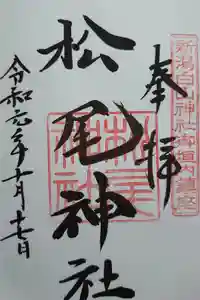 奉拝
新潟白山神社御垣内鎮座
松尾神社
松尾神社
令和元年十月十七日